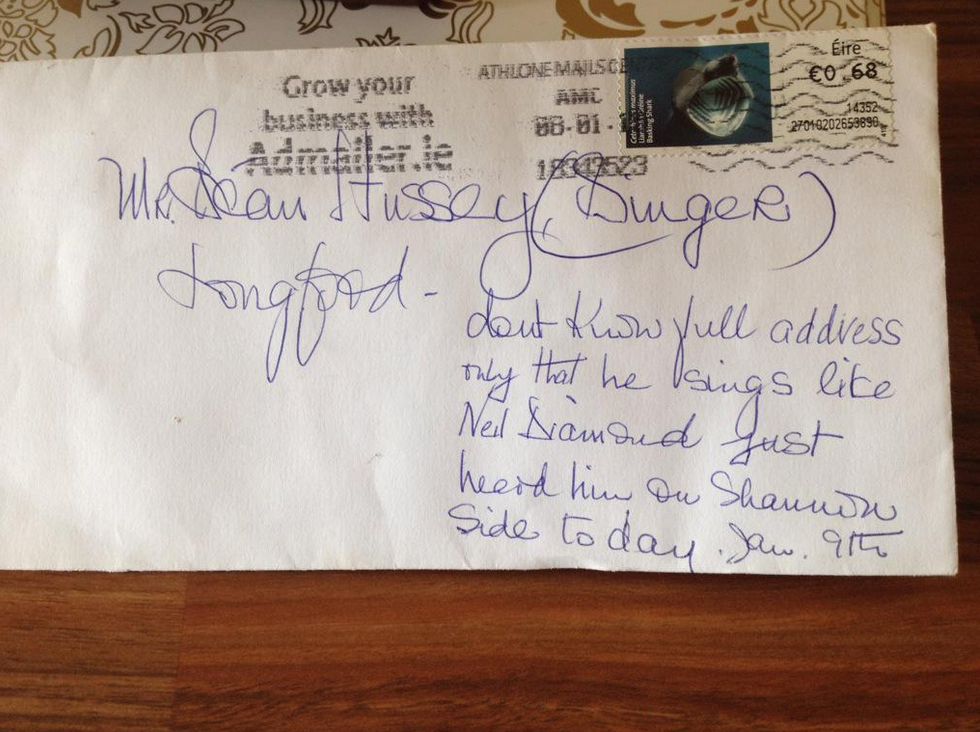 Grow your
business with
Admailer.ie
ATHLONE MAILS
AMC
08-01-
18343523
Éire
€0.68
14352
27010202653890
Basking Shark
Mr. Sean Hussey (Singer)
Longford -
dont know full address
only that he sings like
Neil Diamond just
heard him on Shannon
Side today. Jan. 9th